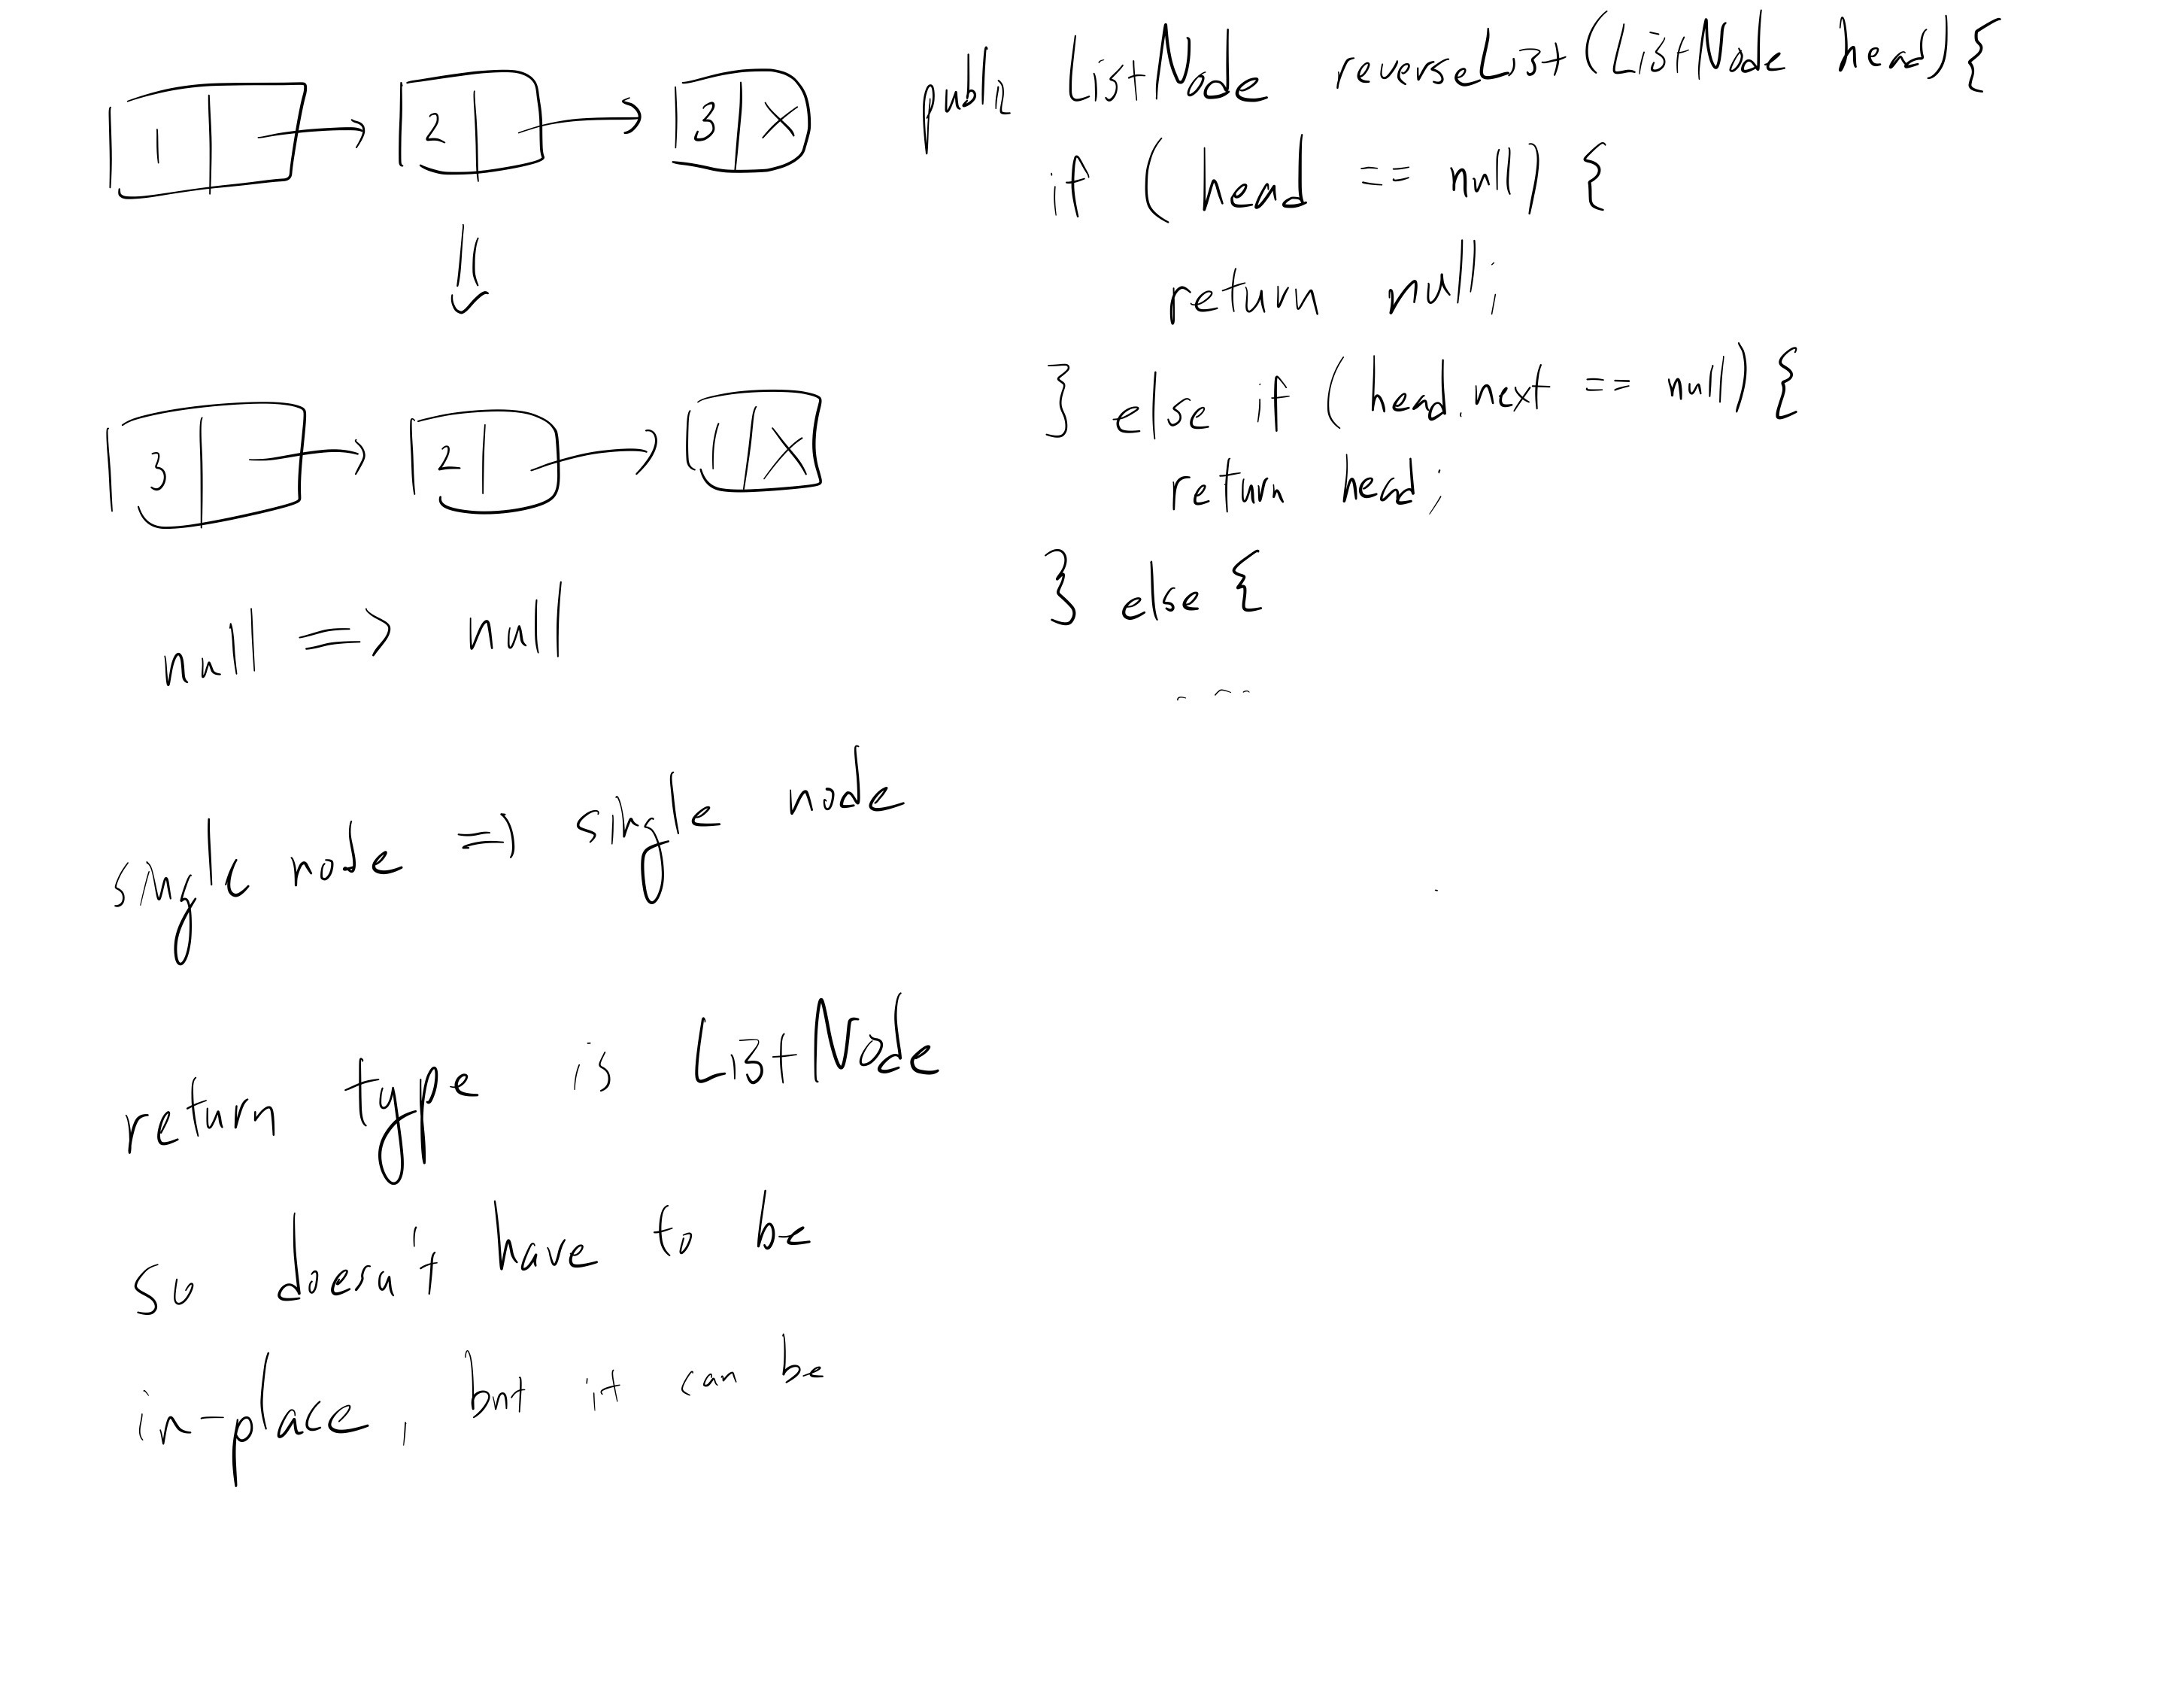 1 2 3 X
3 2 1 X
null => null
single node => single node
return type is ListNode
so doesn't have to be
in-place, but it can be
public ListNode reverseList (ListNode head) {
if ( head == null) {
return null;
} else if (head.next == null) {
return head;
} else {
...